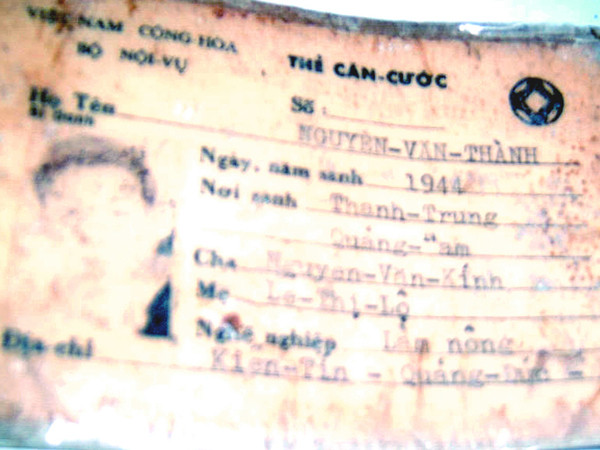 VIỆT-NAM CỘNG-HÒA
BỘ NỘI-VỤ
THẺ CĂN-CƯỚC
Số :
Họ Tên
Bí Danh
NGUYỄN-VĂN-THÀNH
Ngày, năm sanh 1944
Nơi sanh Thanh-Trung
Quảng-"am
Cha Nguyễn-Văn-Kính
Mẹ Lê-Thị-Lộ
Nghề nghiệp Làm nông
Địa chỉ Kiến-Tín - Quảng-Đức -